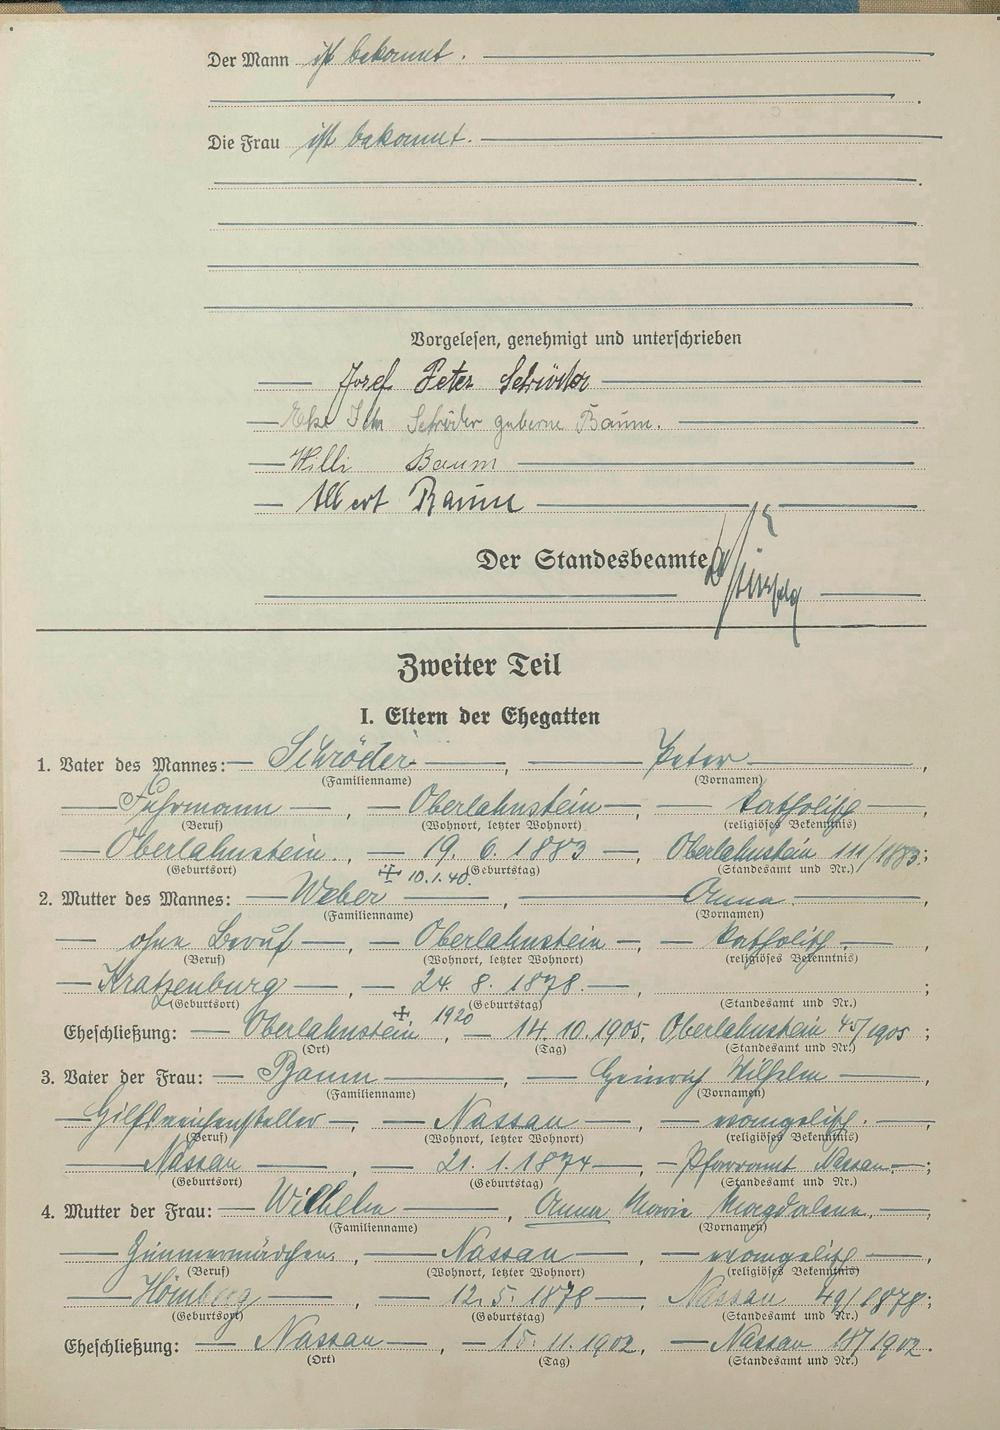 Der Mann ist bekannt.
Die Frau ist bekannt.
Vorgelesen, genehmigt und unterschrieben
Josef Peter Schröder
Schröder geborene Baum.
Willi Baum
Albert Baum
Der Standesbeamte
Zweiter Teil
I. Eltern der Ehegatten
1. Vater des Mannes: Schröder, Peter,
(Familienname) (Vornamen)
Fuhrmann, Oberlahnstein, katholisch,
(Beruf) (Wohnort, letzter Wohnort) (religiöses Bekenntnis)
Oberlahnstein, 19. 6. 1883, Oberlahnstein 111/1883;
(Geburtsort) (Geburtstag) (Standesamt und Nr.)
+ 10.1.40.
2. Mutter des Mannes: Weber, Anna,
(Familienname) (Vornamen)
ohne Beruf, Oberlahnstein, katholisch,
(Beruf) (Wohnort, letzter Wohnort) (religiöses Bekenntnis)
Kratzenburg, 24. 8. 1878,
(Geburtsort) (Geburtstag) (Standesamt und Nr.)
+ 1920
Eheschließung: Oberlahnstein, 14. 10. 1905, Oberlahnstein 45/1905;
(Ort) (Tag) (Standesamt und Nr.)
3. Vater der Frau: Baum, Heinrich Wilhelm,
(Familienname) (Vornamen)
Hilfsweichensteller, Nassau, evangelisch,
(Beruf) (Wohnort, letzter Wohnort) (religiöses Bekenntnis)
Nassau, 21. 1. 1874, Pfarramt Nassau;
(Geburtsort) (Geburtstag) (Standesamt und Nr.)
4. Mutter der Frau: Wilhelm, Anna Marie Magdalena,
(Familienname) (Vornamen)
Zimmermädchen, Nassau, evangelisch,
(Beruf) (Wohnort, letzter Wohnort) (religiöses Bekenntnis)
Hömberg, 12. 5. 1878, Nassau 49/1878;
(Geburtsort) (Geburtstag) (Standesamt und Nr.)
Eheschließung: Nassau, 15. 11. 1902, Nassau /1902.
(Ort) (Tag) (Standesamt und Nr.)